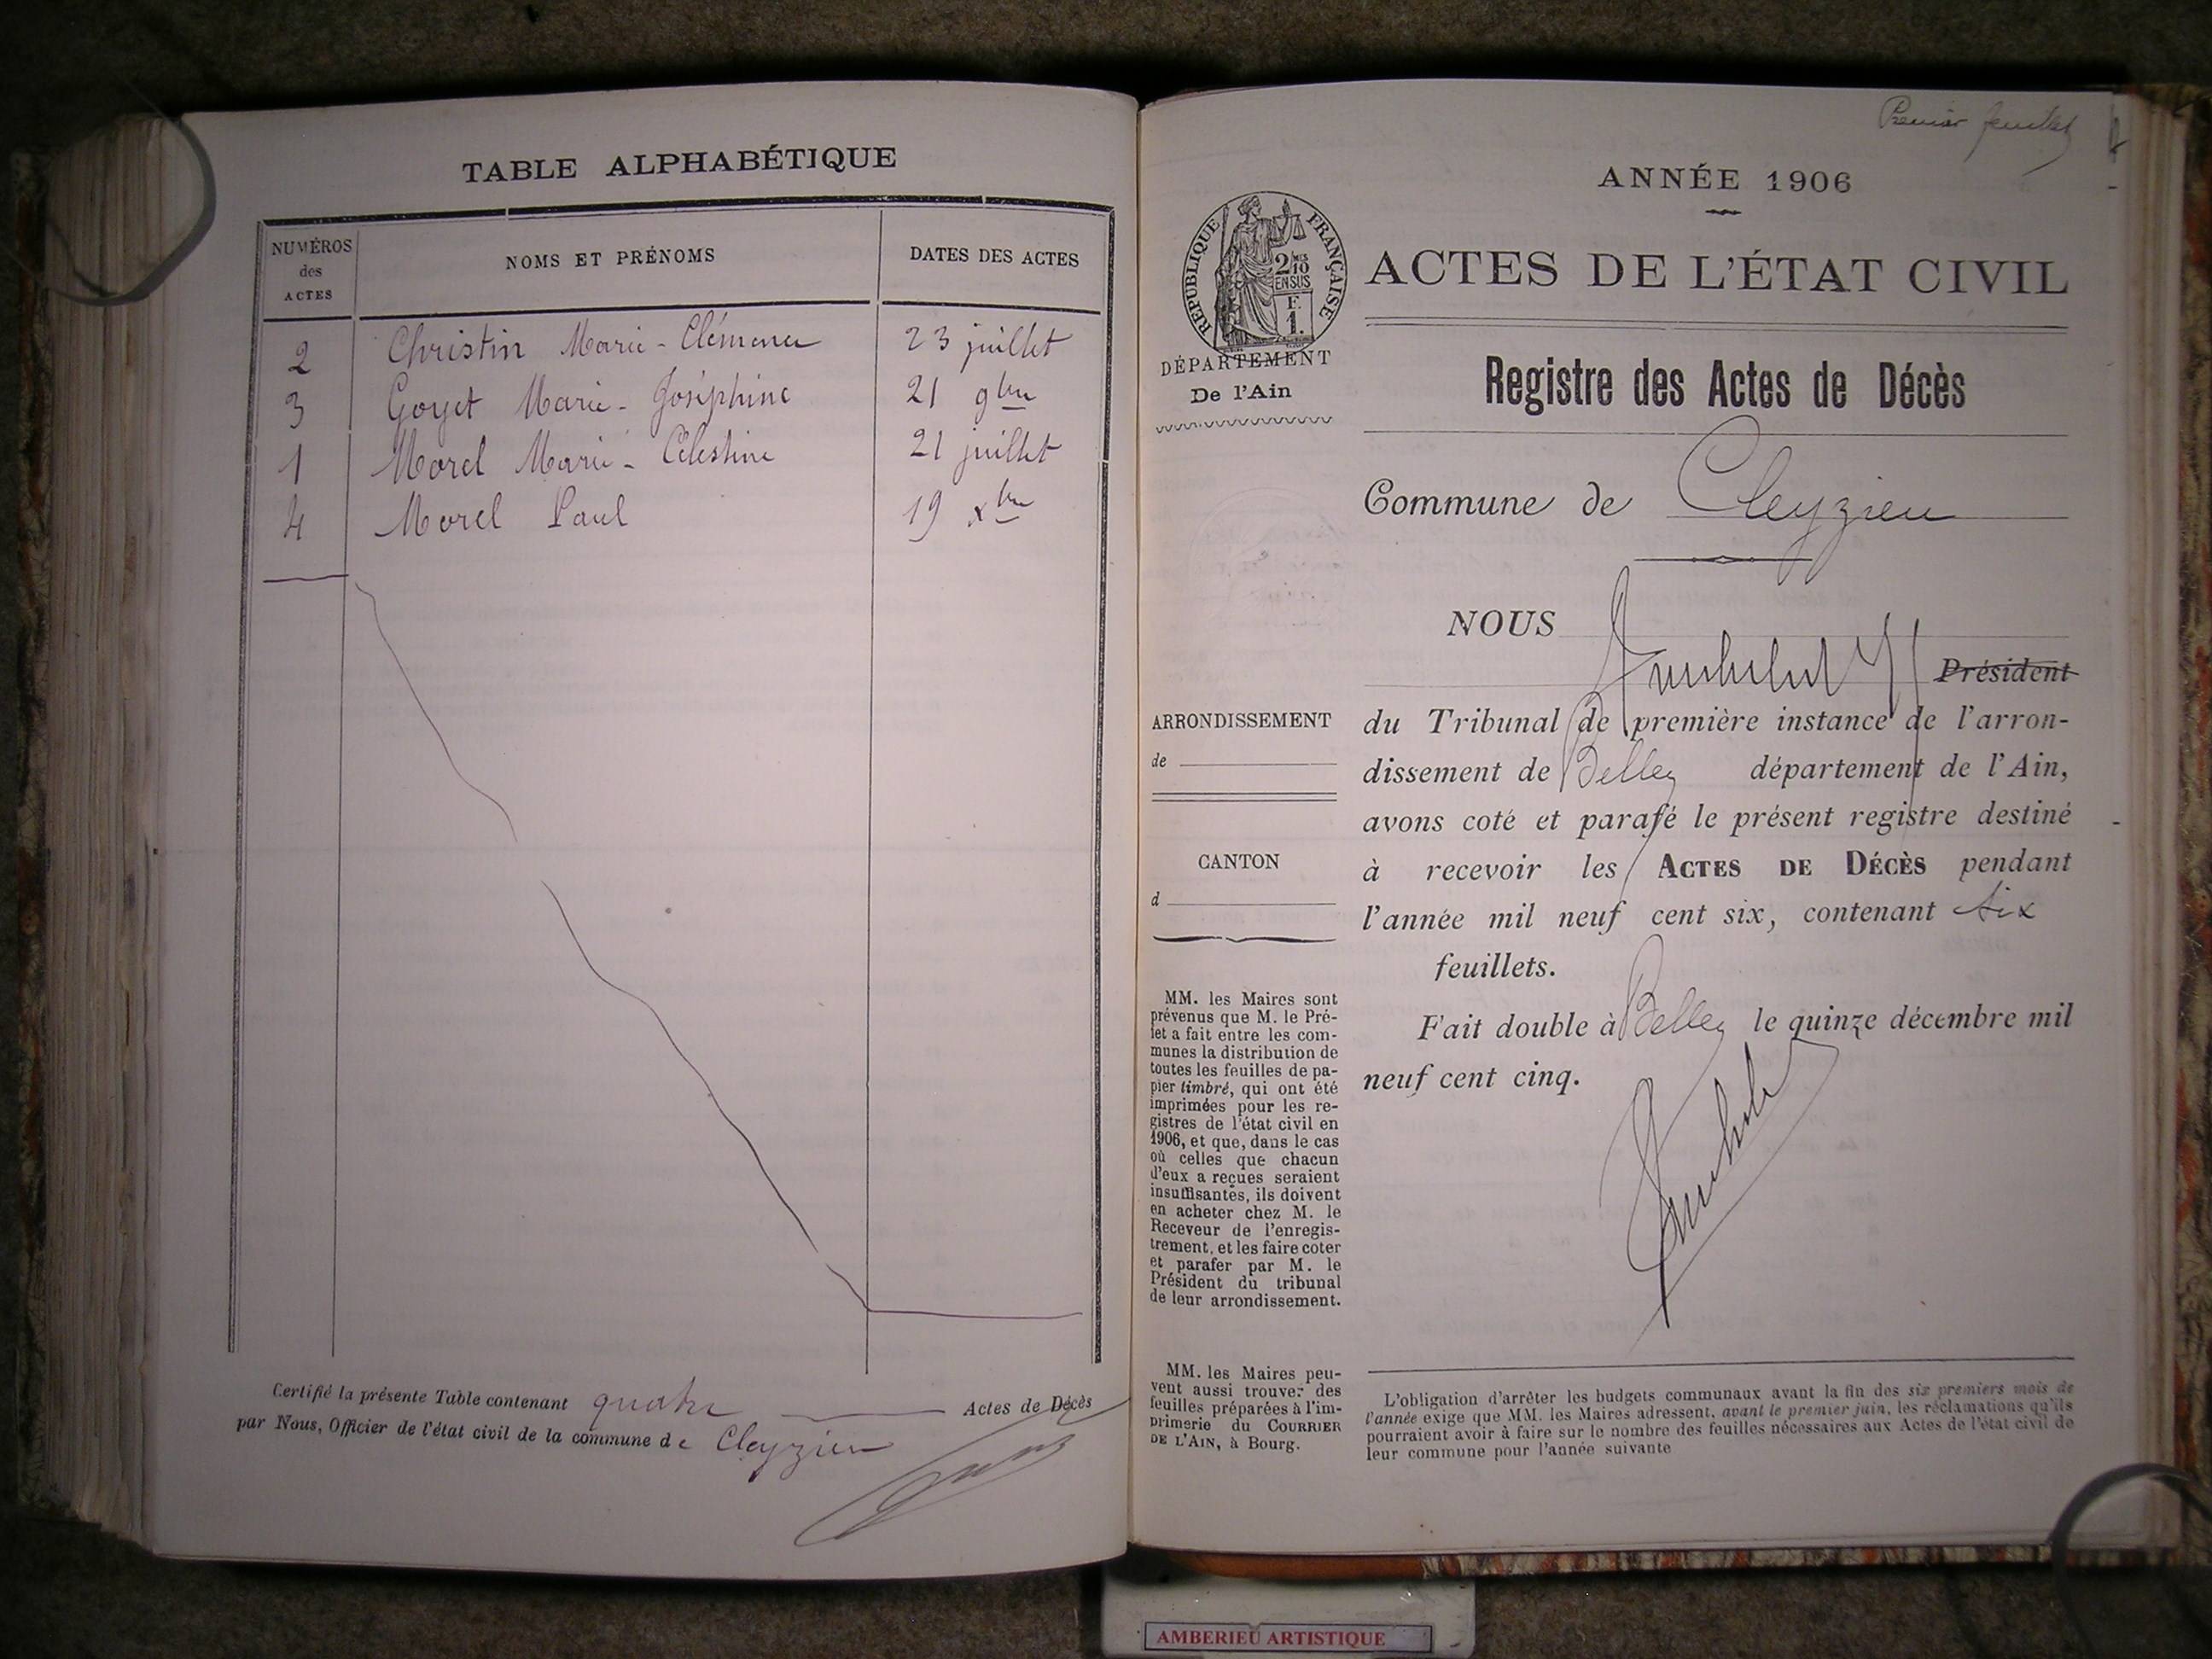 TABLE ALPHABÉTIQUE
NUMÉROS des ACTES
NOMS ET PRÉNOMS
DATES DES ACTES
2 Christin Marie-Clémence 23 juillet
3 Goyet Marie-Joséphine 21 9bre
1 Morel Marie-Célestine 21 juillet
4 Morel Paul 19 xbre
Certifié la présente Table contenant quatre Actes de Décès
par Nous, Officier de l'état civil de la commune de Cleyzieu
Premier feuillet
ANNÉE 1906
RÉPUBLIQUE FRANÇAISE
2/10 EN SUS
F. 1.
DÉPARTEMENT
De l'Ain
ACTES DE L'ÉTAT CIVIL
Registre des Actes de Décès
Commune de Cleyzieu
NOUS
Président
du Tribunal de première instance de l'arron-
dissement de Belley département de l'Ain,
avons coté et parafé le présent registre destiné
à recevoir les ACTES DE DÉCÈS pendant
l'année mil neuf cent six, contenant six
feuillets.
Fait double à Belley le quinze décembre mil
neuf cent cinq.
ARRONDISSEMENT
de
CANTON
d
MM. les Maires sont
prévenus que M. le Pré-
fet a fait entre les com-
munes la distribution de
toutes les feuilles de pa-
pier timbré, qui ont été
imprimées pour les re-
gistres de l'état civil en
1906, et que, dans le cas
où celles que chacun
d'eux a reçues seraient
insuffisantes, ils doivent
en acheter chez M. le
Receveur de l'enregis-
trement, et les faire coter
et parafer par M. le
Président du tribunal
de leur arrondissement.
MM. les Maires peu-
vent aussi trouver des
feuilles préparées à l'im-
primerie du COURRIER
DE L'AIN, à Bourg.
L'obligation d'arrêter les budgets communaux avant la fin des six premiers mois de
l'année exige que MM. les Maires adressent, avant le premier juin, les réclamations qu'ils
pourraient avoir à faire sur le nombre des feuilles nécessaires aux Actes de l'état civil de
leur commune pour l'année suivante
AMBERIEU ARTISTIQUE